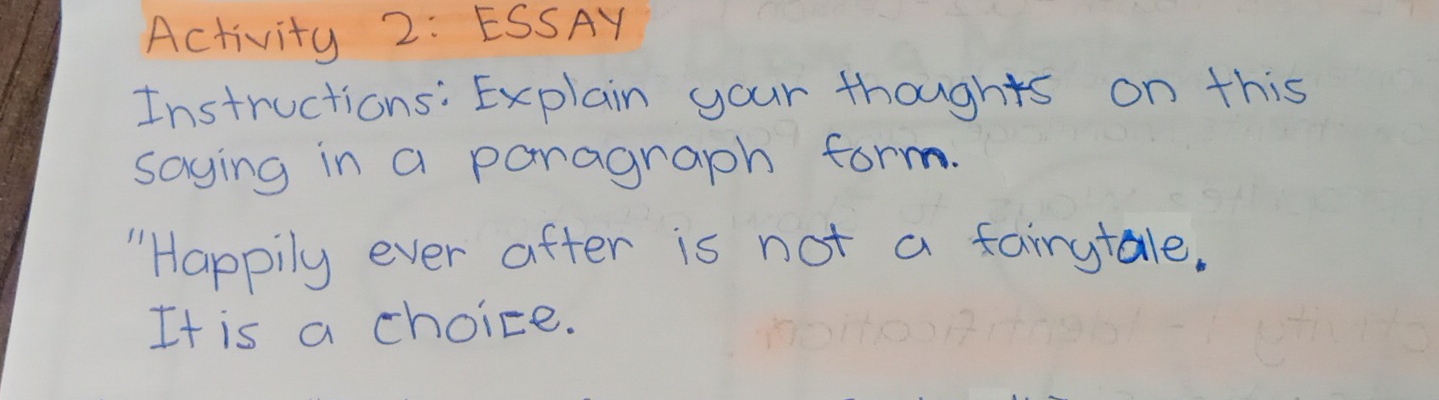 Activity 2: ESSAY
Instructions: Explain your thoughts on this
saying in a paragraph form.
"Happily ever after is not a fairytale.
It is a choice.